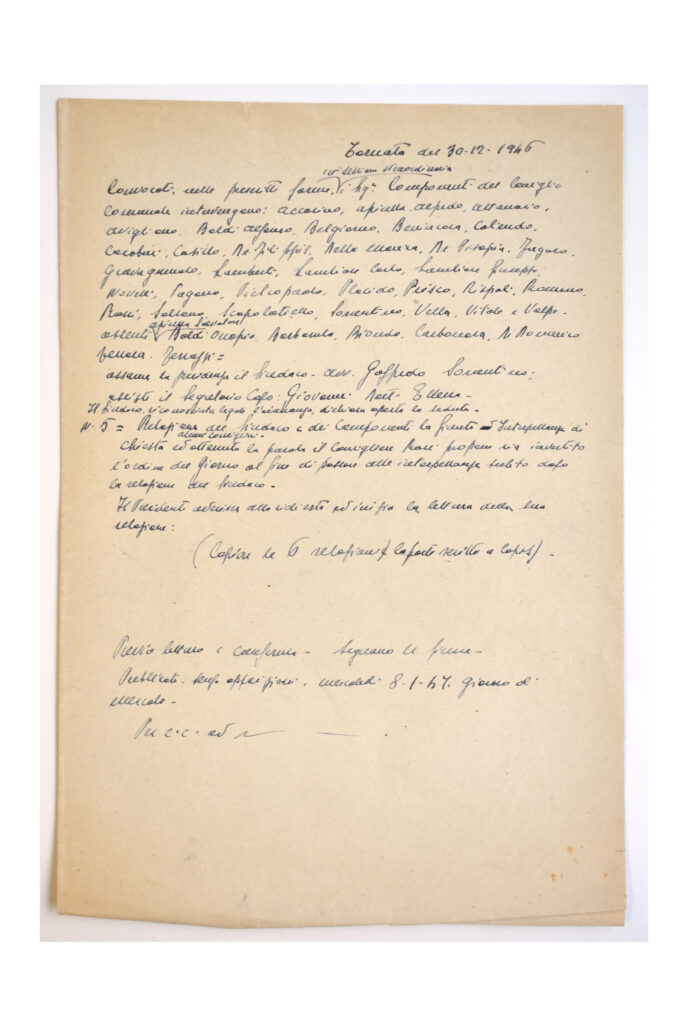 Tornata del 30-12-1946
in sessione straordinaria
Convocati, nelle prescritte forme, i Sigg. Componenti del Consiglio
Comunale intervengono: Accarino, Apicella Alfredo, Attanasio,
Avigliano, Baldi Alfonso, Belgiorno, Benincasa, Calendo,
Casaburi, Casillo, De Filippis, Della Monica, De Pisapia,
Gravagnuolo, Lamberti, Lambiase Carlo, Lambiase Giuseppe,
Novelli, Pagano, Pietropaolo, Placido, Prisco, Rispoli, Romano,
Rossi, Salsano, Scapolatiello, Sorrentino, Vella, Vitale e Volpe.
Apicella Salvatore
Assenti Baldi Onofrio, Barbarulo, Biondo, Carbonara, D'Domenico
Ferrara. Terrazzi =
Assume la presidenza il Sindaco - Avv. Goffredo Sorrentino;
Assiste il Segretario Capo: Giovanni Dott. Ellena -
Il Sindaco, riconosciuta legale l'adunanza, dichiara aperta la seduta -
N. 5 = Relazione del Sindaco e dei Componenti la Giunta ed Interpellanza di
alcuni consiglieri -
Chiesta ed ottenuta la parola il Consigliere Rossi propone sia invertito
l'ordine del Giorno al fine di passare alle interpellanze subito dopo
la relazione del Sindaco -
Il Presidente aderisce alla richiesta ed inizia la lettura della sua
relazione:
(Copiare le 6 relazioni la parte scritta a lapis) -
Previa lettura e conferma - Seguono le firme -
Pubblicato senza opposizioni, mercoledì 8-1-47, giorno di
mercato -
Per c.c. ad